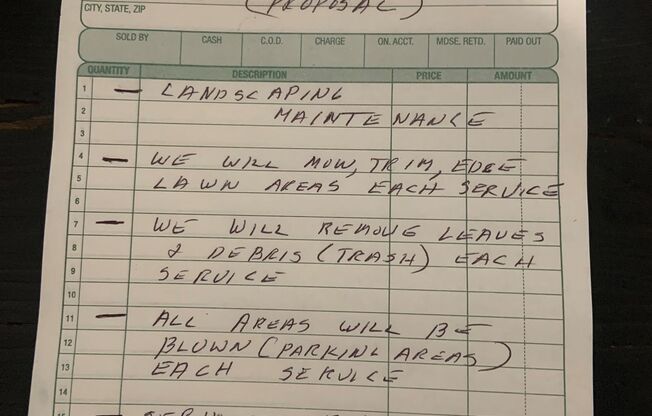 (PROPOSAL)
CITY, STATE, ZIP
SOLD BY CASH C.O.D. CHARGE ON. ACCT. MDSE. RETD. PAID OUT
QUANTITY DESCRIPTION PRICE AMOUNT
1 — LANDSCAPING
2 MAINTENANCE
3
4 — WE WILL MOW, TRIM, EDGE
5 LAWN AREAS EACH SERVICE
6
7 — WE WILL REMOVE LEAVES
8 & DEBRIS (TRASH) EACH
9 SERVICE
10
11 — ALL AREAS WILL BE
12 BLOWN (PARKING AREAS)
13 EACH SERVICE
14
15 —